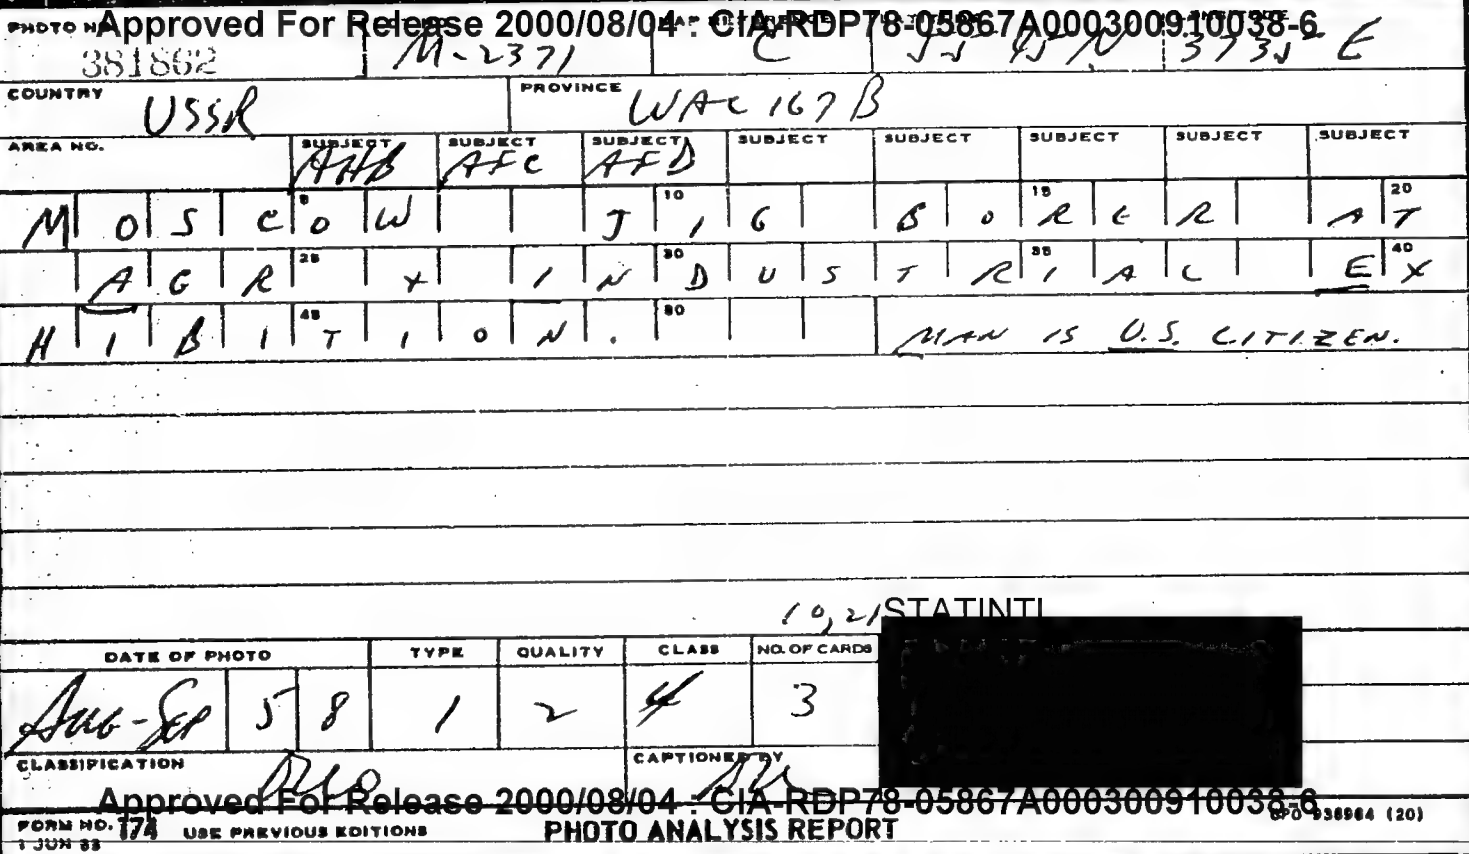 PHOTO NO. Approved For Release 2000/08/04 : CIA-RDP78-05867A000300910038-6
381862 M-2371 C 55 45 N 3735 E
COUNTRY USSR PROVINCE WAC 167 B
AREA NO. SUBJECT AHB SUBJECT AFC SUBJECT AFD SUBJECT SUBJECT SUBJECT SUBJECT SUBJECT
MOSCOW JIG BORER AT
AGR + INDUSTRIAL EX
HIBITION. MAN IS U.S. CITIZEN.
10,21 STATINTL
DATE OF PHOTO TYPE QUALITY CLASS NO. OF CARDS
Aug-Sep 58 1 2 4 3
CLASSIFICATION CAPTIONED BY
Approved For Release 2000/08/04 : CIA-RDP78-05867A000300910038-6
FORM NO. 174 USE PREVIOUS EDITIONS PHOTO ANALYSIS REPORT GPO 938964 (20)
1 JUN 53